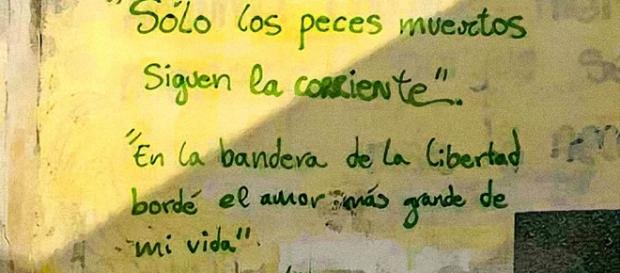 "Sólo los peces muertos
Siguen la corriente".
"En la bandera de la libertad
bordé el amor más grande de
mi vida"